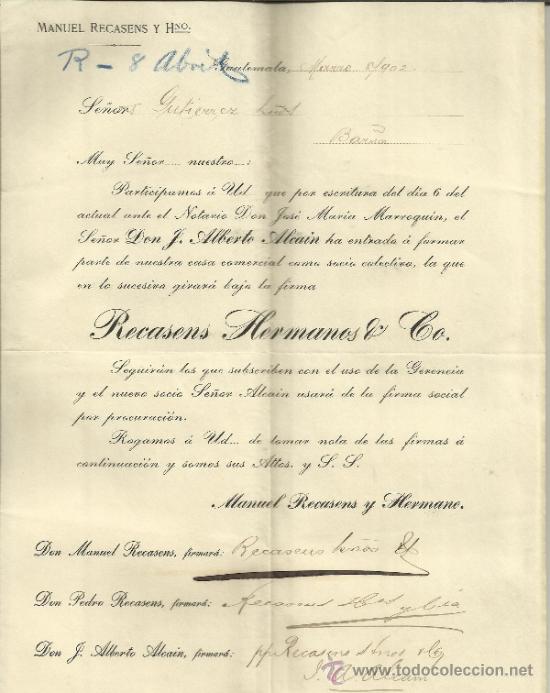 MANUEL RECASENS Y HNO.
R - 8 Abril
Guatemala, Marzo 8/902
Señores Gutierrez
Barna
Muy Señor nuestro:
Participamos á Ud que por escritura del día 6 del
actual ante el Notario Don José María Marroquin, el
Señor Don J. Alberto Alcain ha entrado á formar
parte de nuestra casa comercial como socio colectivo, la que
en lo sucesivo girará bajo la firma
Recasens Hermanos & Co.
Seguirán los que subscriben con el uso de la Gerencia
y el nuevo socio Señor Alcain usará de la firma social
por procuración.
Rogamos á Ud... de tomar nota de las firmas á
continuación y somos sus Attos. y S. S.
Manuel Recasens y Hermano.
Don Manuel Recasens, firmará: Recasens
Don Pedro Recasens, firmará: Recasens
Don J. Alberto Alcain, firmará: pp Recasens
J. A. Alcain
www.todocoleccion.net